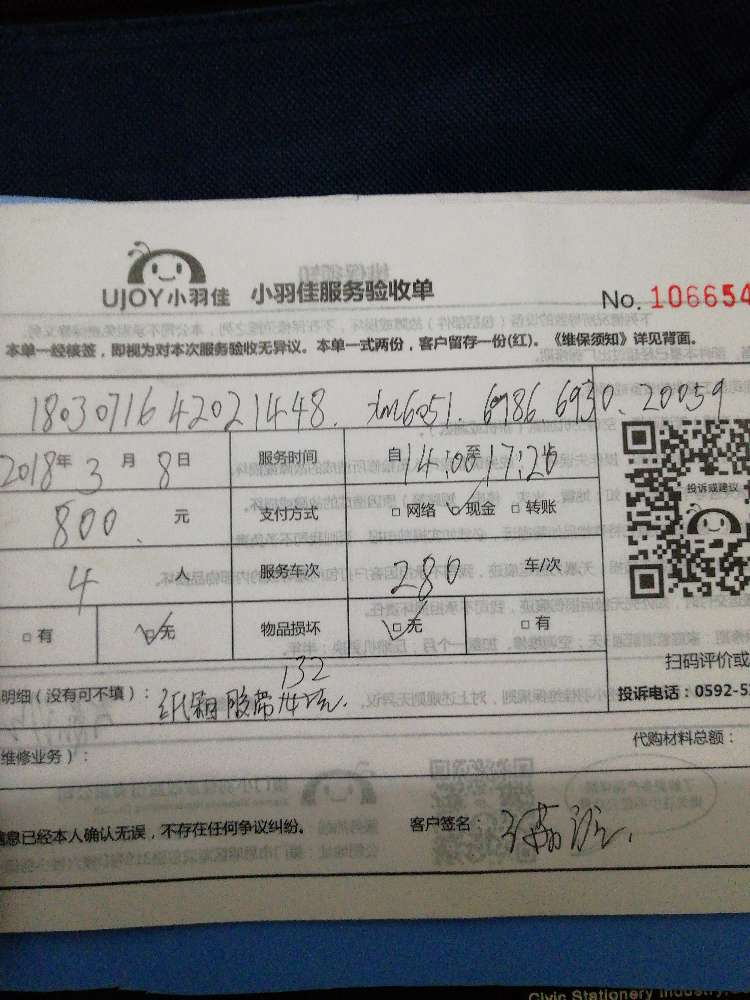 UJOY小羽佳 小羽佳服务验收单 No. 106654
本单一经核签，即视为对本次服务验收无异议。本单一式两份，客户留存一份(红)。《维保须知》详见背面。
18030716 42021448. 6051. 6986 6930. 20059
2018年3月8日 服务时间 自14:00至17:26
800. 元 支付方式 □网络 ☑现金 □转账
投诉或建议
4 人 服务车次 280 车/次
□有 ☑无 物品损坏 ☑无 □有
扫码评价或
132
明细（没有可不填）： 纸箱胶带 投诉电话：0592-5
维修业务）： 代购材料总额：
信息已经本人确认无误，不存在任何争议纠纷。 客户签名：
Civic Stationery Industry